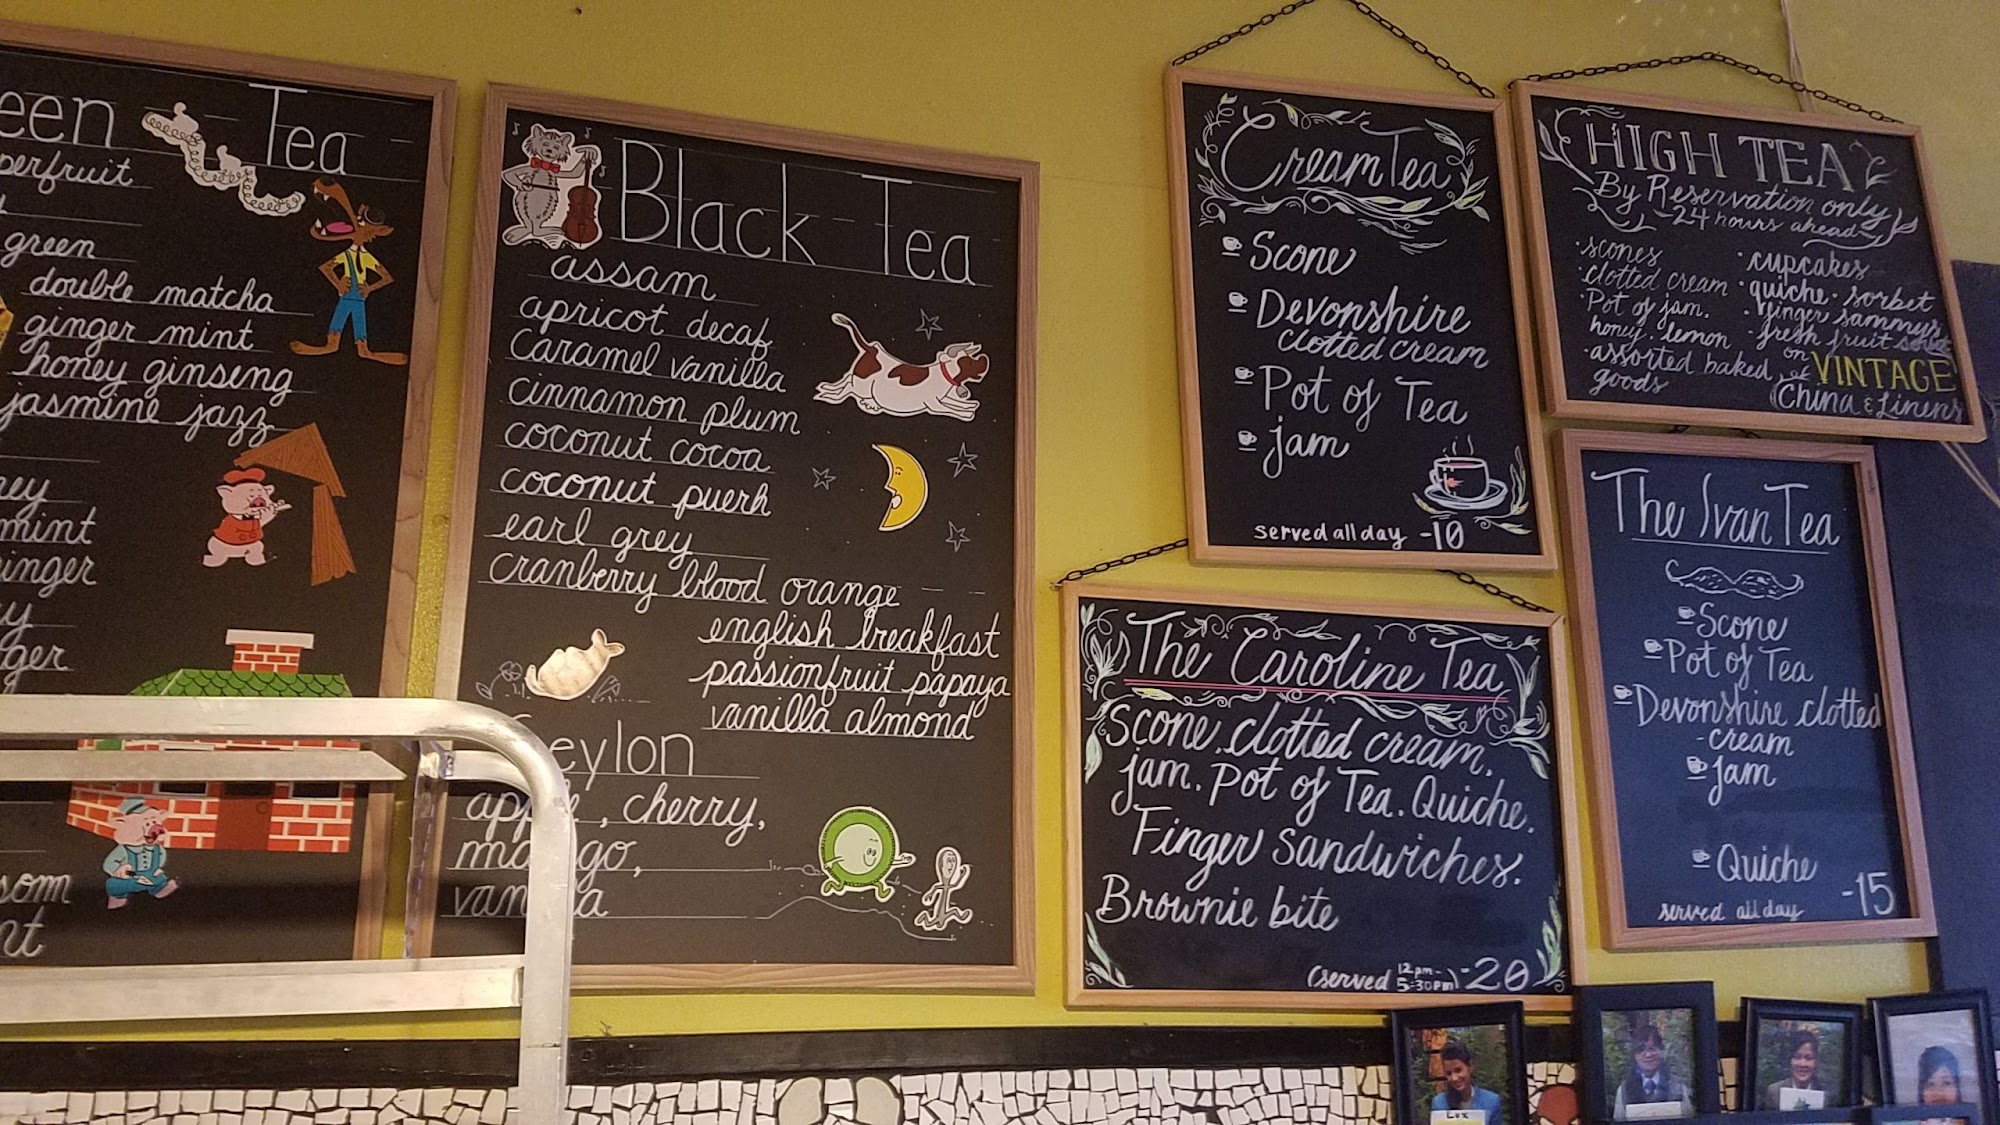 Tea
green
double matcha
ginger mint
honey ginseng
jasmine jazz
mint
Black Tea
assam
apricot decaf
caramel vanilla
cinnamon plum
coconut cocoa
coconut puerh
earl grey
cranberry blood orange
english breakfast
passionfruit papaya
vanilla almond
Ceylon
apple, cherry,
mango,
vanilla
Cream Tea
Scone
Devonshire
clotted cream
Pot of Tea
jam
served all day -10
HIGH TEA
By Reservation only
-24 hours ahead-
·scones
·clotted cream
·Pot of jam.
honey. lemon
·assorted baked
goods
·cupcakes
·quiche·sorbet
·finger sammys
-fresh fruit
on VINTAGE
China & Linens
The Caroline Tea
Scone. clotted cream.
jam. Pot of Tea. Quiche.
Finger Sandwiches.
Brownie bite
(served 12pm-5:30pm) -20
The Ivan Tea
Scone
Pot of Tea
Devonshire clotted
-cream
Jam
Quiche
served all day -15
Lux